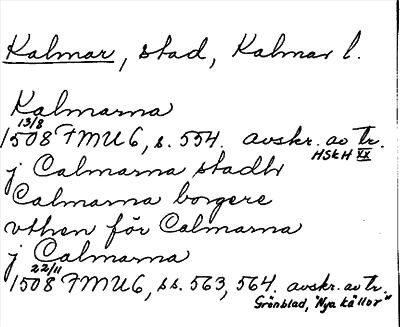 Kalmar, stad, Kalmar l.
Kalmarna
13/8
1508 FMU 6, s. 554. avskr. av Tr.
HSkH XX
j Calmarna stadh
Calmarna borgere
vthen för Calmarna
j Calmarna
22/11
1508 FMU 6, ss. 563, 564. avskr. av Tr.
Grönblad, "Nya källor"